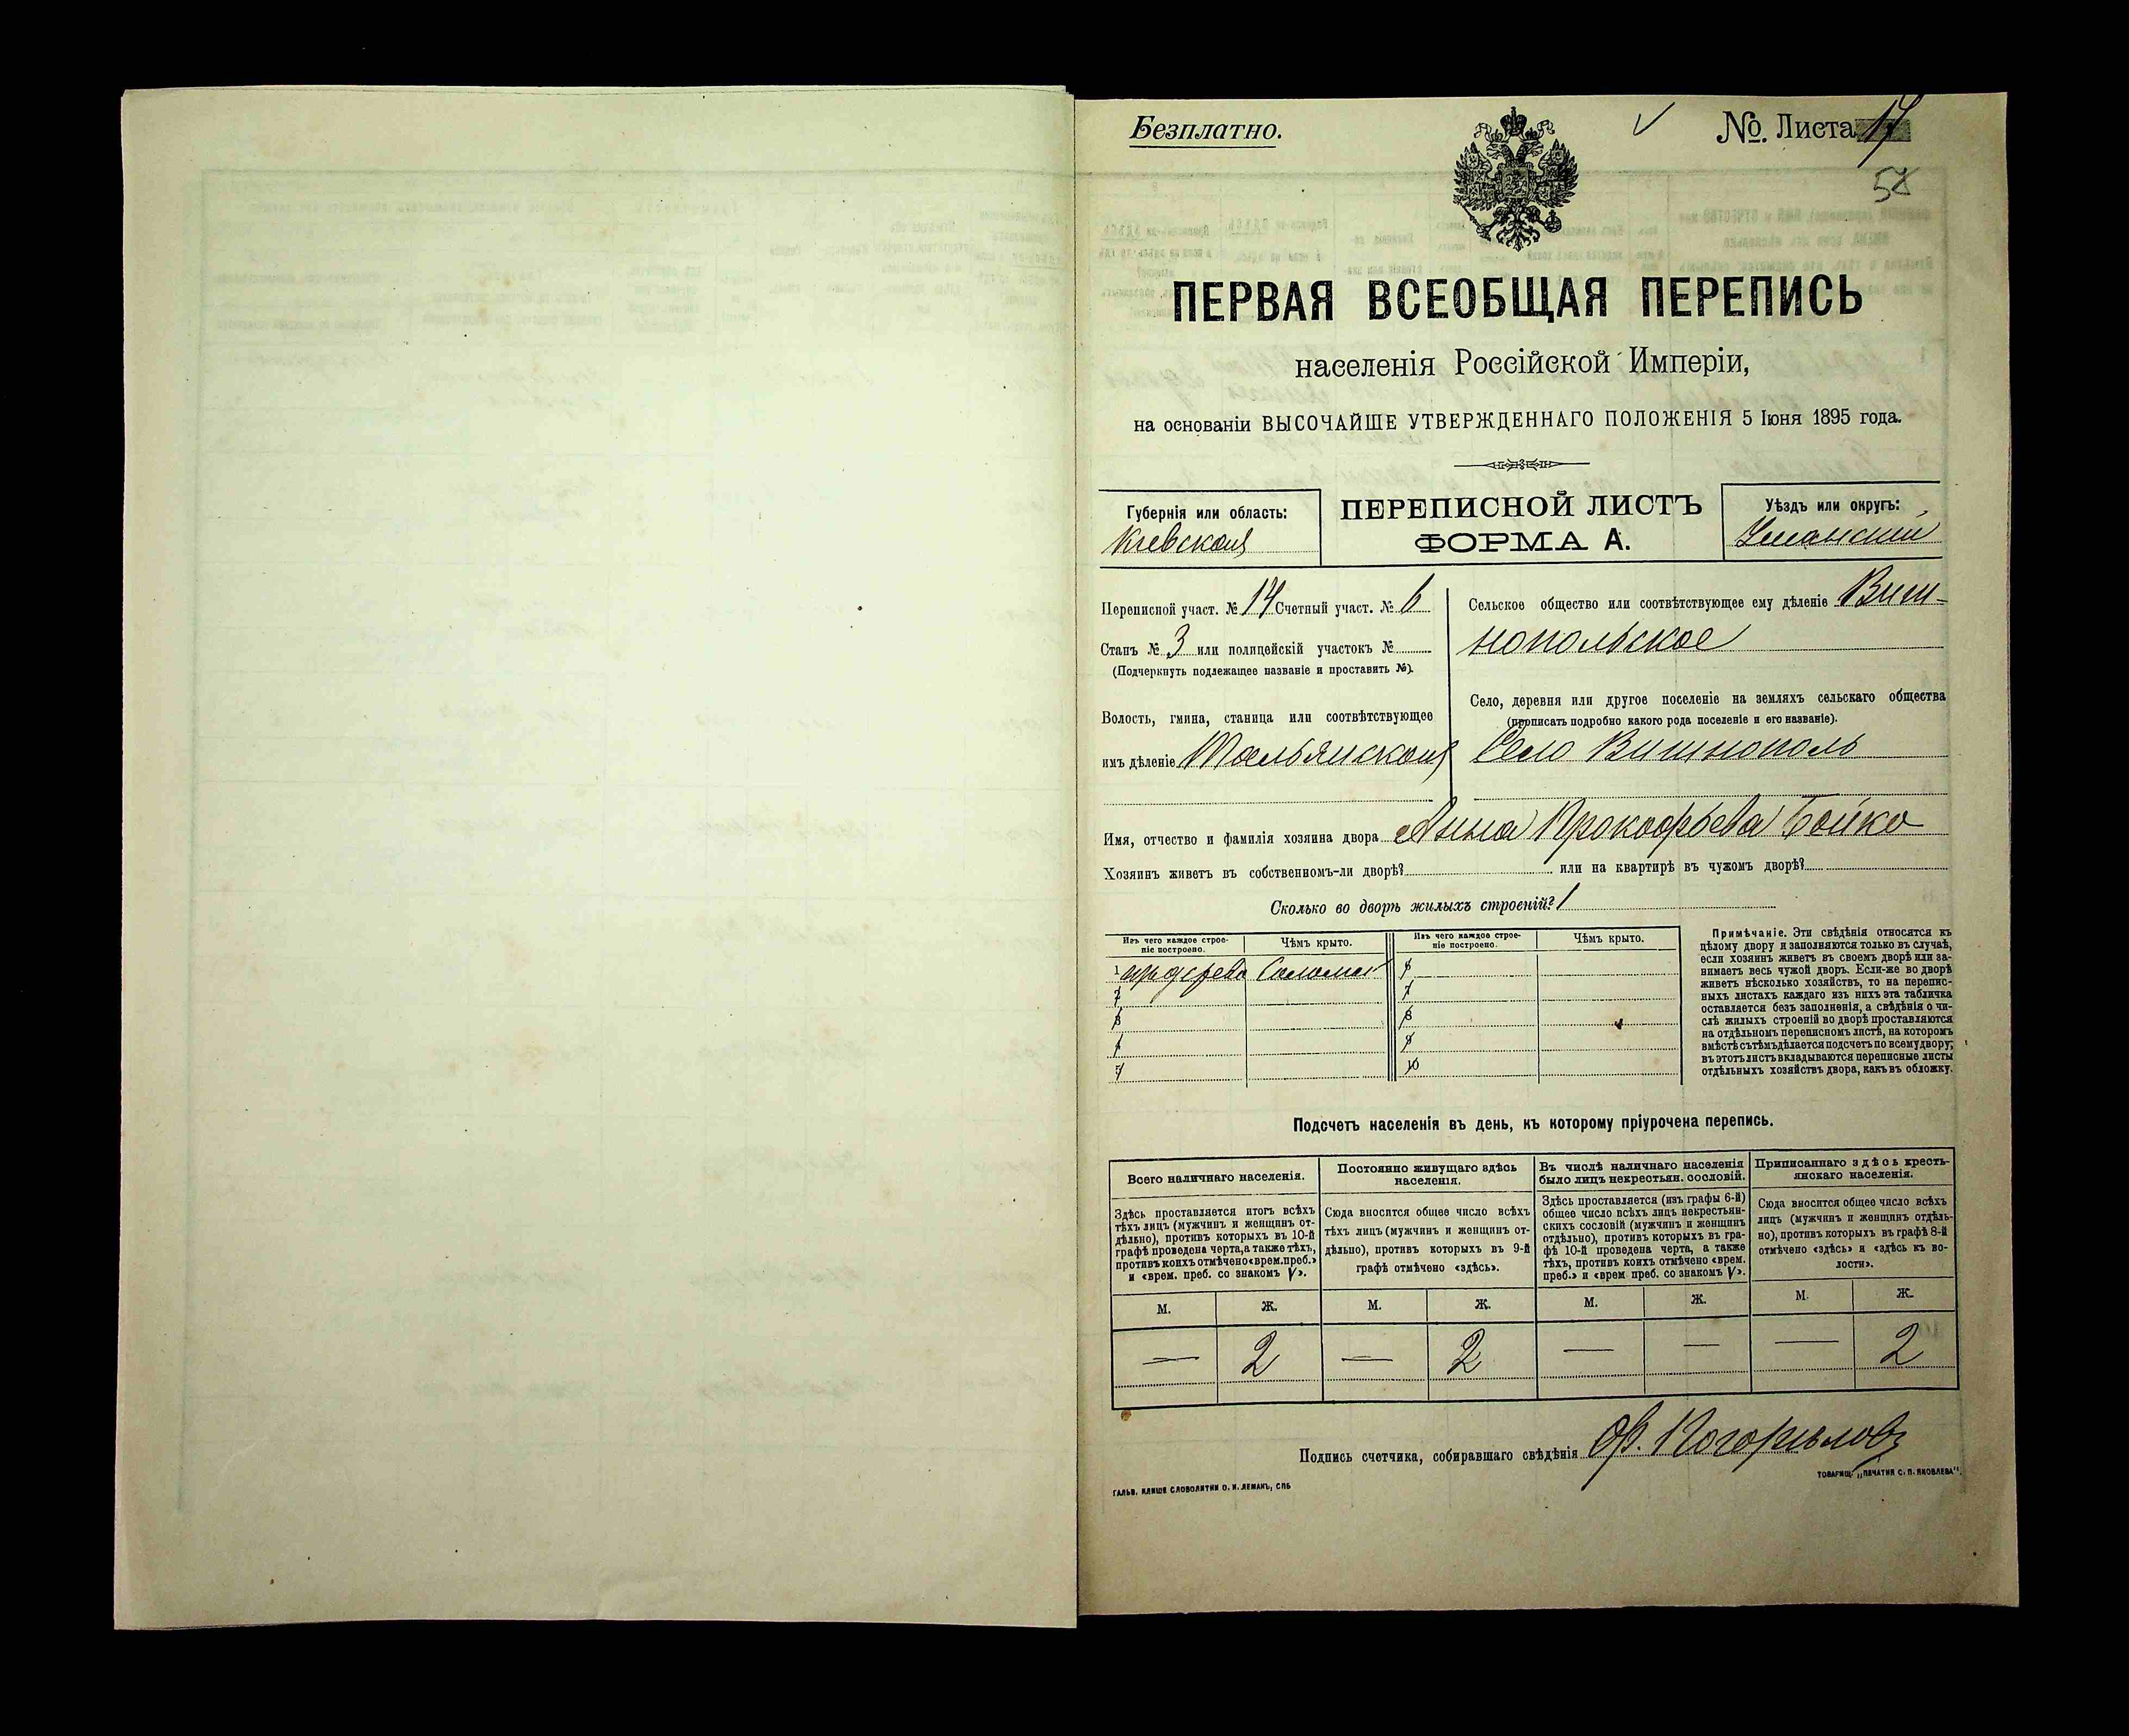 Безплатно.
№. Листа 17
58
ПЕРВАЯ ВСЕОБЩАЯ ПЕРЕПИСЬ
населенія Россійской Имперіи,
на основаніи ВЫСОЧАЙШЕ УТВЕРЖДЕННАГО ПОЛОЖЕНІЯ 5 Іюня 1895 года.
Губернія или область:
Кіевская
ПЕРЕПИСНОЙ ЛИСТЪ
ФОРМА А.
Уѣздъ или округъ:
Уманскій
Переписной участ. № 14 Счетный участ. № 6
Станъ № 3 или полицейскій участокъ №
(Подчеркнуть подлежащее названіе и проставить №).
Волость, гмина, станица или соотвѣтствующее
имъ дѣленіе Тальянская
Сельское общество или соотвѣтствующее ему дѣленіе Виш-
нопольское
Село, деревня или другое поселеніе на земляхъ сельскаго общества
(прописать подробно какого рода поселеніе и его названіе).
Село Вишнополь
Имя, отчество и фамилія хозяина двора Анна Прокофьева Бойко
Хозяинъ живетъ въ собственномъ-ли дворѣ? или на квартирѣ въ чужомъ дворѣ?
Сколько во дворѣ жилыхъ строеній? 1
Изъ чего каждое строе-
ніе построено.
Чѣмъ крыто.
Изъ чего каждое строе-
ніе построено.
Чѣмъ крыто.
1 дерева Соломой 6
2 7
3 8
4 9
5 10
Примѣчаніе. Эти свѣдѣнія относятся къ
цѣлому двору и заполняются только въ случаѣ,
если хозяинъ живетъ въ своемъ дворѣ или за-
нимаетъ весь чужой дворъ. Если-же во дворѣ
живетъ нѣсколько хозяйствъ, то на перепис-
ныхъ листахъ каждаго изъ нихъ эта табличка
оставляется безъ заполненія, а свѣдѣнія о чи-
слѣ жилыхъ строеній во дворѣ проставляются
на отдѣльномъ переписномъ листѣ, на которомъ
вмѣстѣ съ тѣмъ дѣлается подсчетъ по всему двору;
въ этотъ листъ вкладываются переписные листы
отдѣльныхъ хозяйствъ двора, какъ въ обложку.
Подсчетъ населенія въ день, къ которому пріурочена перепись.
Всего наличнаго населенія.
Здѣсь проставляется итогъ всѣхъ
тѣхъ лицъ (мужчинъ и женщинъ от-
дѣльно), противъ которыхъ въ 10-й
графѣ проведена черта, а также тѣхъ,
противъ коихъ отмѣчено «врем. преб.»
и «врем. преб. со знакомъ V».
Постоянно живущаго здѣсь
населенія.
Сюда вносится общее число всѣхъ
тѣхъ лицъ (мужчинъ и женщинъ от-
дѣльно), противъ которыхъ въ 9-й
графѣ отмѣчено «здѣсь».
Въ числѣ наличнаго населенія
было лицъ некрестьян. сословій.
Здѣсь проставляется (изъ графы 6-й)
общее число всѣхъ лицъ некрестьян-
скихъ сословій (мужчинъ и женщинъ
отдѣльно), противъ которыхъ въ гра-
фѣ 10-й проведена черта, а также
тѣхъ, противъ коихъ отмѣчено «врем.
преб.» и «врем преб. со знакомъ V».
Приписаннаго здѣсь кресть-
янскаго населенія.
Сюда вносится общее число всѣхъ
лицъ (мужчинъ и женщинъ отдѣль-
но), противъ которыхъ въ графѣ 8-й
отмѣчено «здѣсь» и «здѣсь къ во-
лости».
М. Ж. М. Ж. М. Ж. М. Ж.
— 2 — 2 — — — 2
Подпись счетчика, собиравшаго свѣдѣнія Ф. Погорѣловъ
ГАЛЬВ. КЛИШЕ СЛОВОЛИТНИ О. И. ЛЕМАНЪ, СПБ
ТОВАРИЩ. „ПЕЧАТНЯ С. П. ЯКОВЛЕВА".